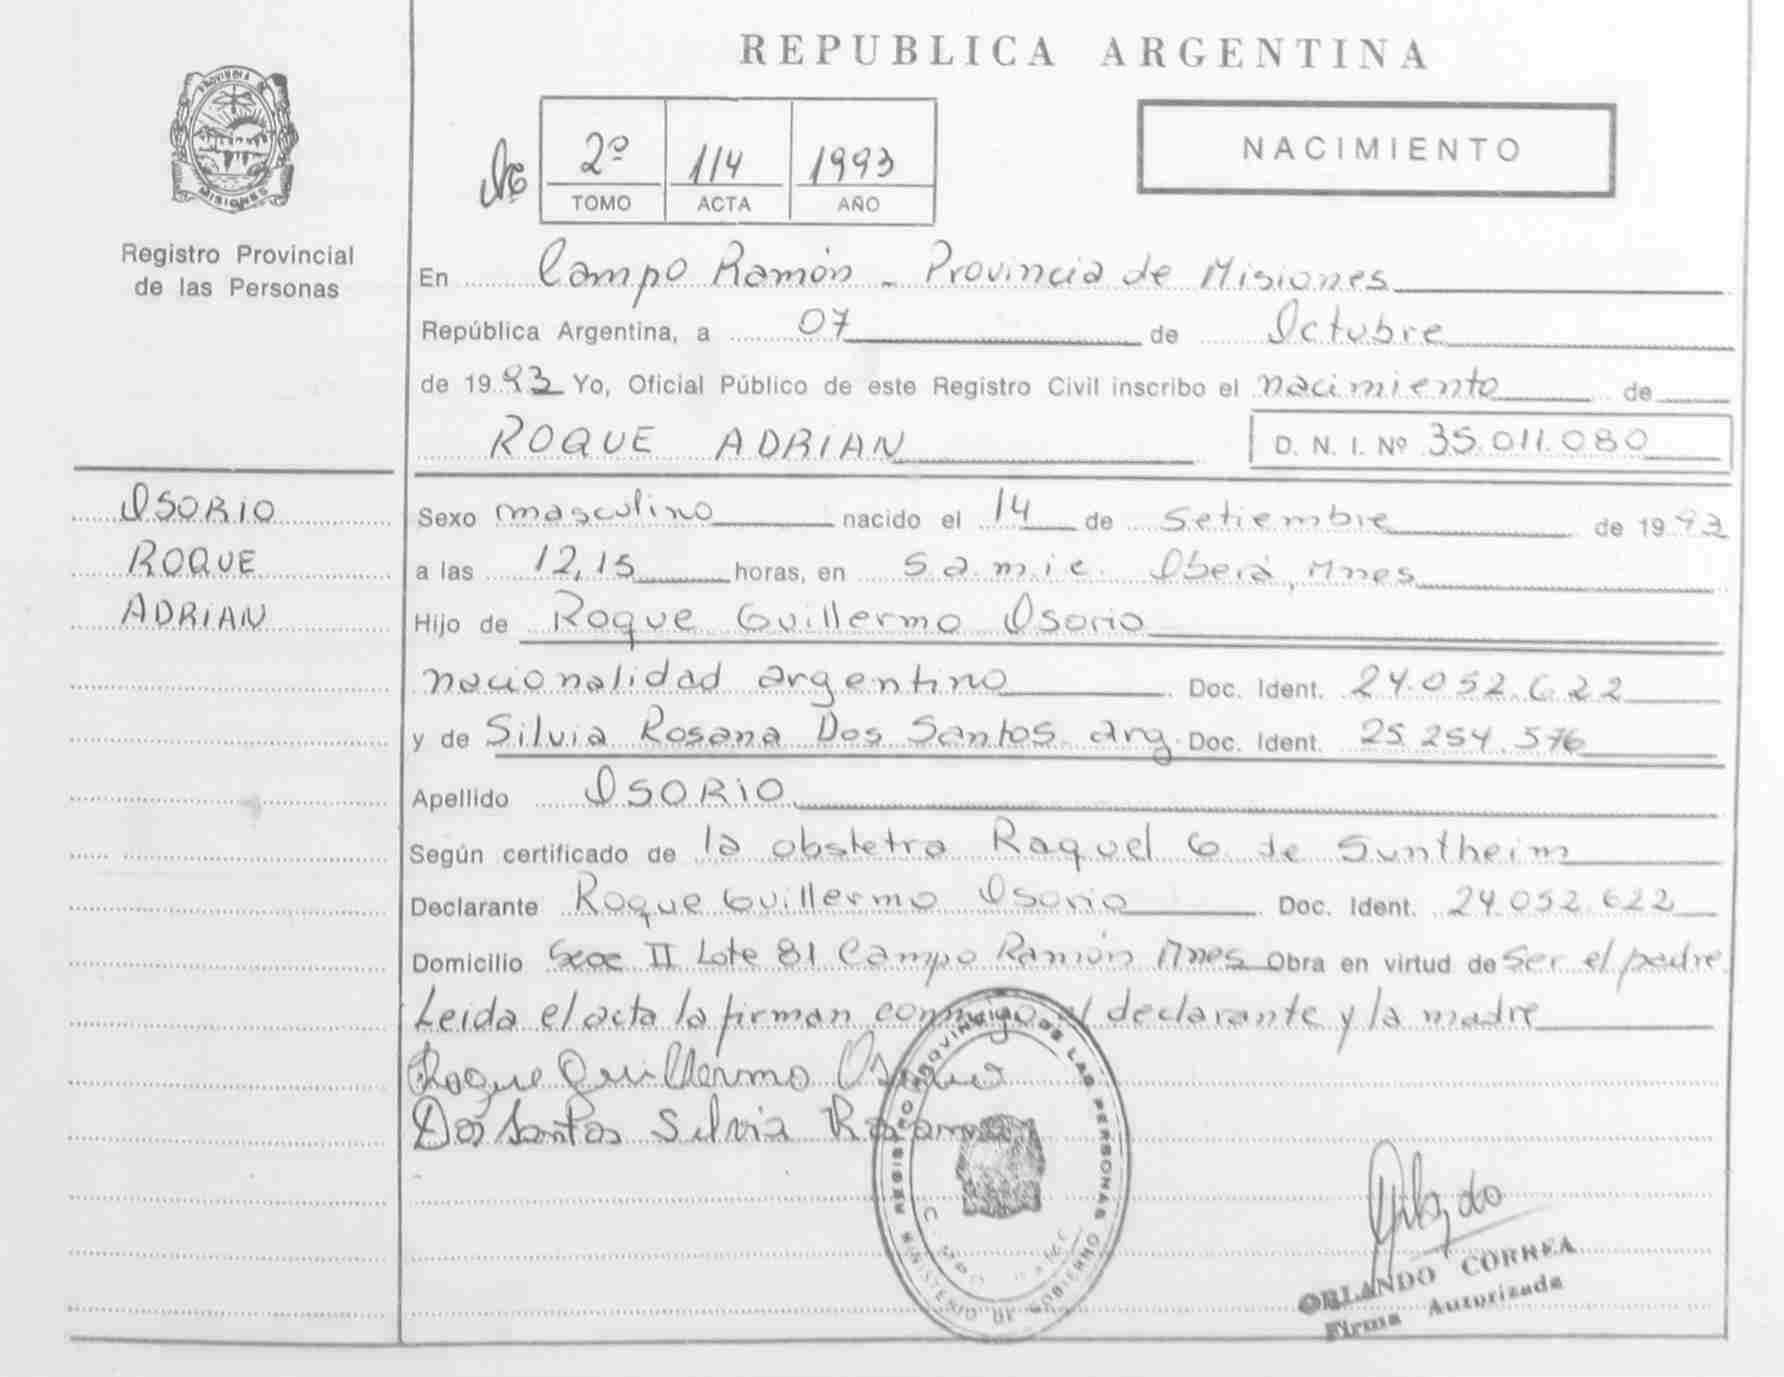 REPUBLICA ARGENTINA
PROVINCIA DE
MISIONES
Registro Provincial
de las Personas
2º 114 1993
TOMO ACTA AÑO
NACIMIENTO
En Campo Ramón - Provincia de Misiones
República Argentina, a 07 de Octubre
de 1993 Yo, Oficial Público de este Registro Civil inscribo el nacimiento de
ROQUE ADRIAN D. N. I. Nº 35.011.080
OSORIO
ROQUE
ADRIAN
Sexo masculino nacido el 14 de Setiembre de 1993
a las 12,15 horas, en S.a.m.i.c. Oberá, Mnes
Hijo de Roque Guillermo Osorio
nacionalidad argentino Doc. Ident. 24.052.622
y de Silvia Rosana Dos Santos arg. Doc. Ident. 25.254.576
Apellido OSORIO
Según certificado de la obstetra Raquel G de Suntheim
Declarante Roque Guillermo Osorio Doc. Ident. 24.052.622
Domicilio II Lote 81 Campo Ramón Mnes Obra en virtud de ser el padre
Leida el acta la firman conmigo el declarante y la madre
Roque Guillermo Osorio
Dos Santos Silvia Rosana
REGISTRO PROVINCIAL DE LAS PERSONAS
MINISTERIO DE GOBIERNO
ORLANDO CORREA
Firma Autorizada